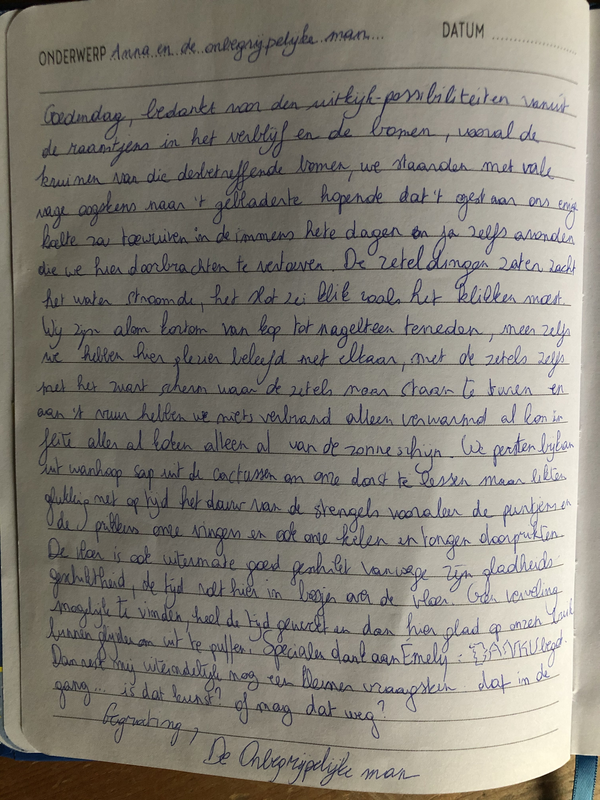 ONDERWERP Anna en de onbegrijpelijke man... DATUM
Goedendag, bedankt voor den uitkijk-possibiliteiten vanuit
de raamtjens in het verblijf en de bomen, vooral de
kruinen van die desbetreffende bomen, we staarden met vale
vage oogskens naar 't gebladerte hopende dat 't ons enige
koelte zou toewuiven in de immens hete dagen en ja zelfs avonden
die we hier doorbrachten te vertoeven. De zeteldingen zaten zacht
het water stroomde, het slot zei klik zoals het klikken moest.
Wij zijn alom kortom van kop tot nagelteen tevreden, meer zelfs
we hebben hier plezier beleefd met elkaar, met de zetels zelfs
met het zwart scherm waar de zetels naar staan te turen en
aan 't vuur hebben we niets verbrand alleen verwarmd al kon in
feite alles al koken alleen al van de zonneschijn. We persten bijkan
uit wanhoop sap uit de cactussen om onze dorst te lessen maar likten
gelukkig net op tijd het dauw van de stengels vooraleer de puntjens en
de prikkers onze vingers en ook onze kelen en tongen doorprikten
De vloer is ook uitermate goed geschikt vanwege zijn gladheids-
geschiktheid, de tijd rolt hier in over de vloer. Geen verveling
mogelijk te vinden, heel de tijd gewroet en dan hier glad op onzen buik
kunnen glijden om uit te puffen. Specialen dank aan Emely: DANKU
Dan rest mij uiteindelijk nog een kleinen vraagsken: dat in de
gang... is dat kunst? of mag dat weg?
Begroeting,
De Onbegrijpelijke man